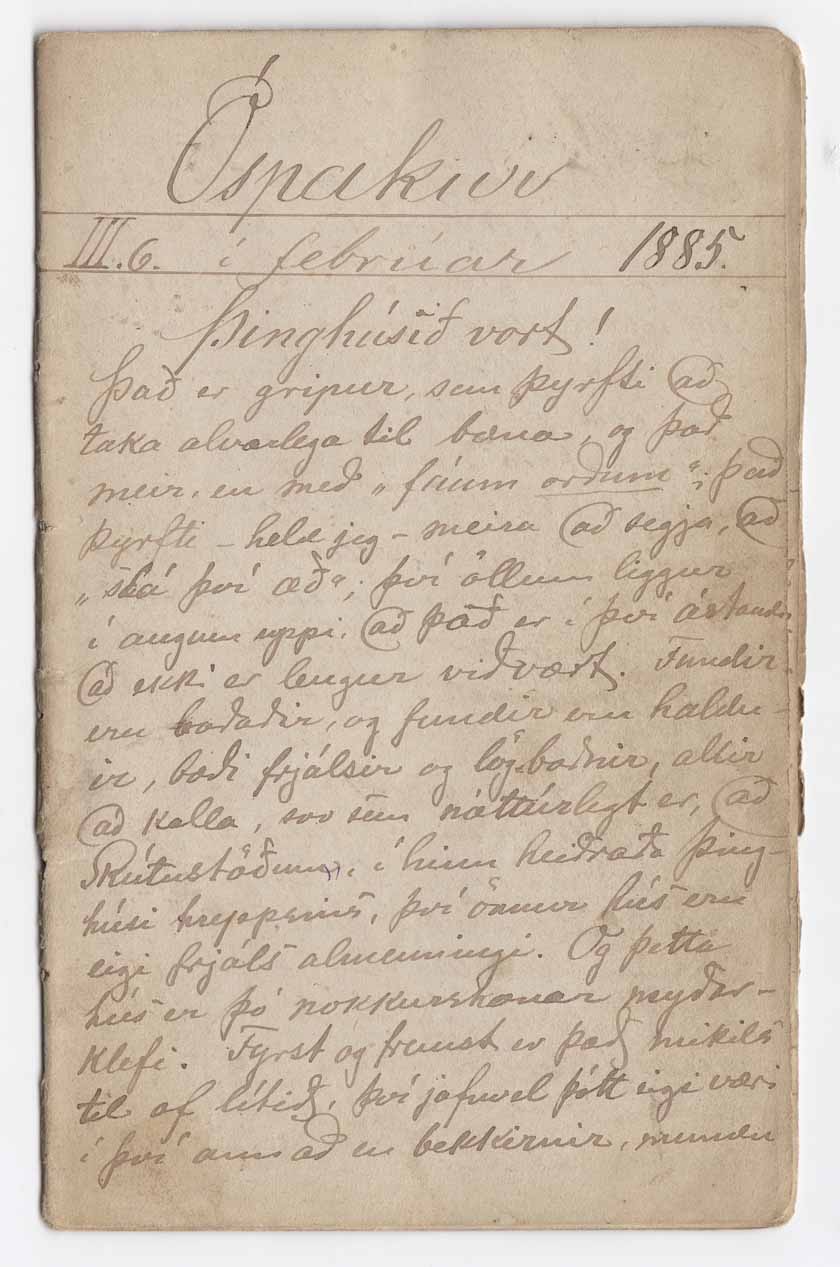 Óspakur
III.6. í febrúar 1885.
Þinghúsið vort!
Það er gripur, sem þyrfti að
taka alvarlega til bæna, og það
meir, en með „fáum orðum“; það
þyrfti - held jeg - meira að segja, að
„slá því æð“; því öllum liggur
í augum uppi, að það er í því ástandi
að ekki er lengur viðvært. Fundir
eru boðaðir, og fundir eru haldn-
ir, bæði frjálsir og lögboðnir, allir
að kalla, svo sem náttúrlegt er, að
Skútustöðum, í hinu heiðraða þing-
húsi hreppsins, því önnur hús eru
eigi frjáls almenningi. Og þetta
hús er þó nokkurskonar myðar-
klefi. Fyrst og fremst er það mikils
til of lítið, því jafnvel þótt eigi væri
í því annað en bekkirnir, mundu